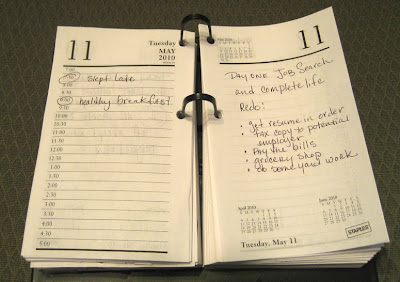 11
Tuesday
MAY
2010
7:30
8:00
slept late
8:30
9:00
healthy breakfast
9:30
10:00
10:30
11:00
11:30
12:00
12:30
1:00
1:30
2:00
2:30
3:00
3:30
4:00
4:30
5:00
11
Day one Job Search
and complete life
Redo:
• get resume in order
• fax copy to potential
employer
• Pay the bills
• grocery shop
• do some yard work
April 2010
June 2010
STAPLES
Tuesday, May 11